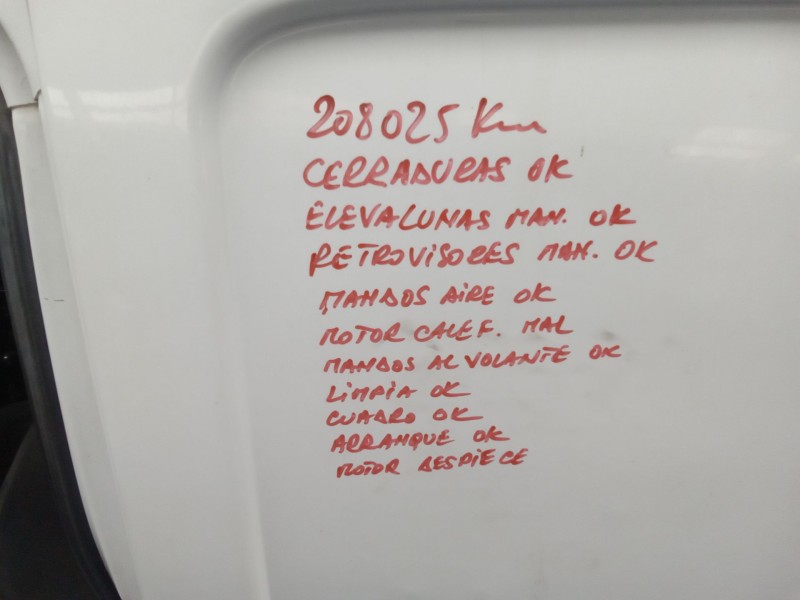 208025 Km
CERRADURAS OK
ELEVALUNAS MAN. OK
RETROVISORES MAN. OK
MANDOS AIRE OK
MOTOR CALEF. MAL
MANDOS AL VOLANTE OK
LIMPIA OK
CUADRO OK
ARRANQUE OK
MOTOR DESPIECE